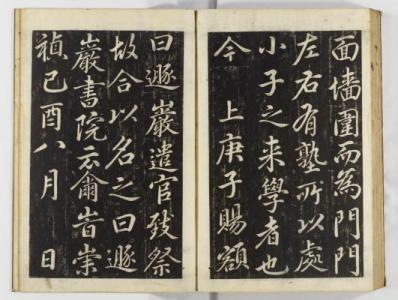 面墻圍而為門門
左右有塾所以處
小子之来學者也
今 上庚子賜額
曰遯巖遣官致祭
故合以名之曰遯
巖書院云爾旹崇
禎己酉八月 日